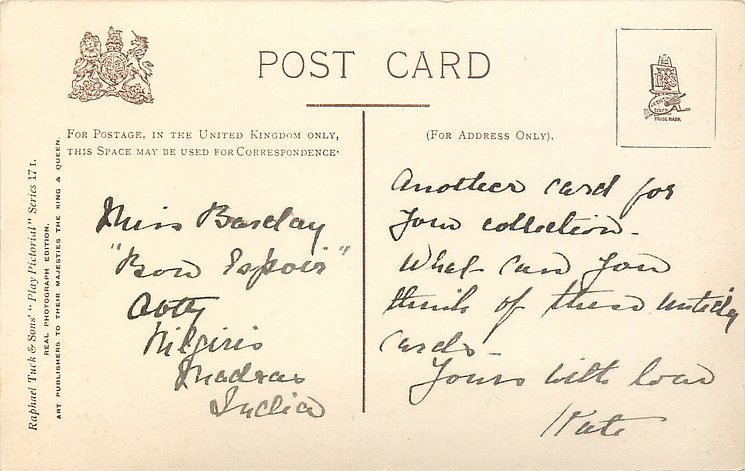 POST CARD
FOR POSTAGE, IN THE UNITED KINGDOM ONLY,
THIS SPACE MAY BE USED FOR CORRESPONDENCE.
(FOR ADDRESS ONLY).
TRADE MARK
Raphael Tuck & Sons' "Play Pictorial" Series 171.
REAL PHOTOGRAPH EDITION.
ART PUBLISHERS TO THEIR MAJESTIES THE KING & QUEEN.
Miss Barclay
"Bon Espoir"
Ooty
Nilgiris
Madras
India
Another card for
your collection-
What can you
think of these untidy
cards-
Yours with love
Kate